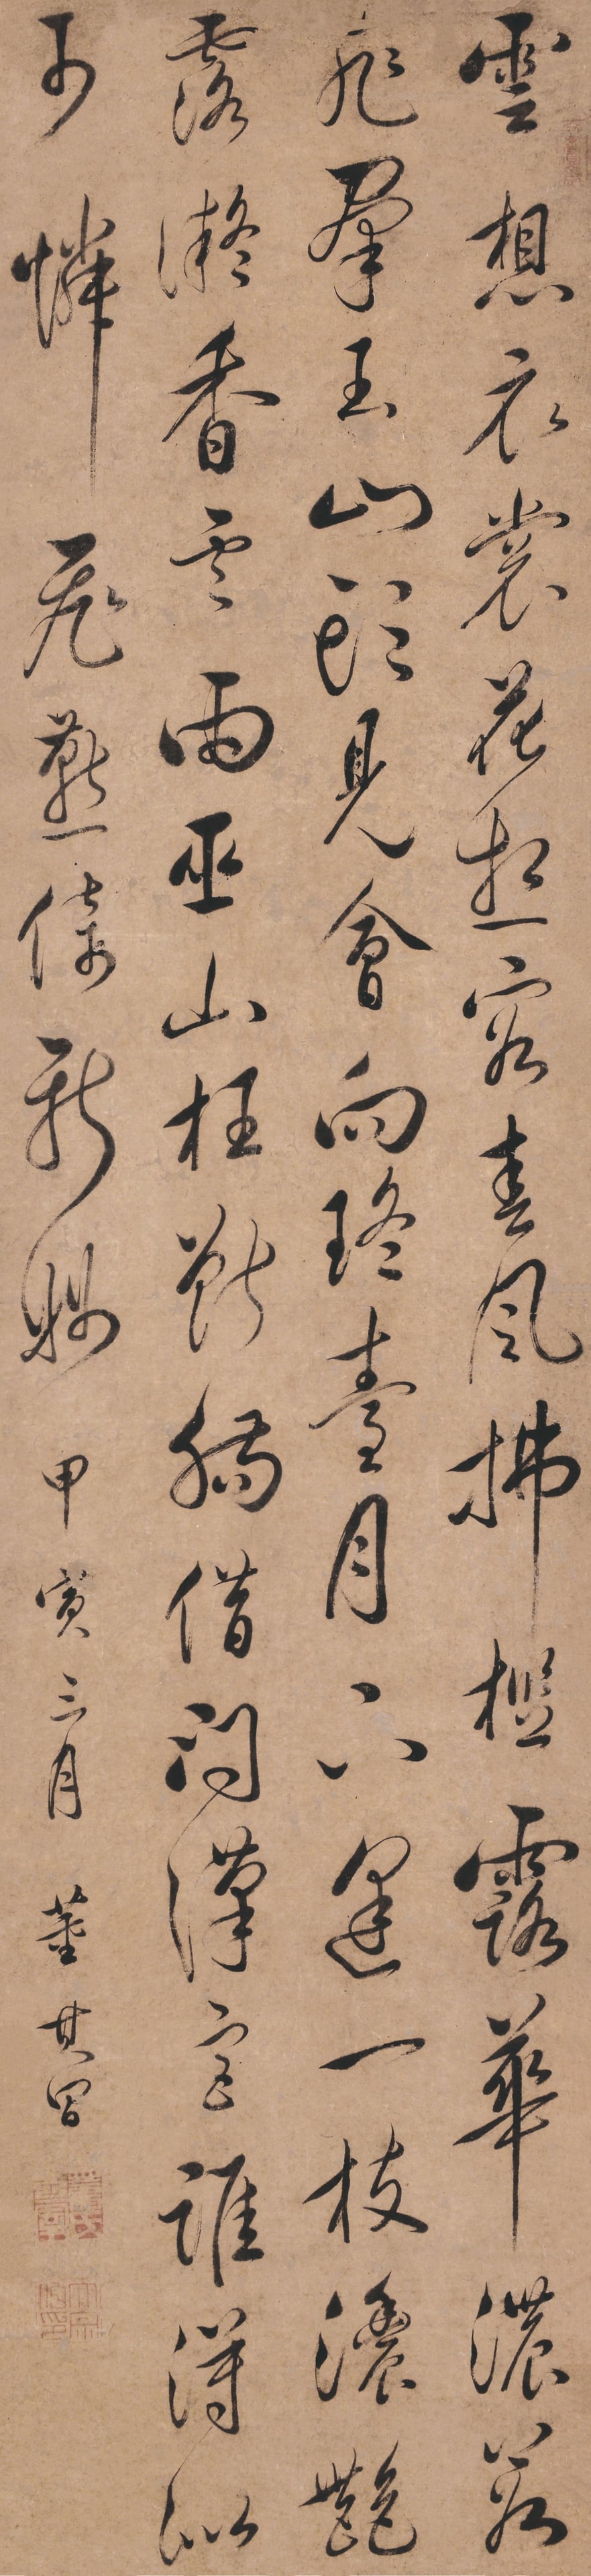 雲想衣裳花想容春風拂檻露華濃若
非羣玉山頭見會向瑤臺月下逢一枝濃艷
露凝香雲雨巫山枉斷腸借問漢宮誰得似
可憐飛燕倚新粧 甲寅三月 董其昌